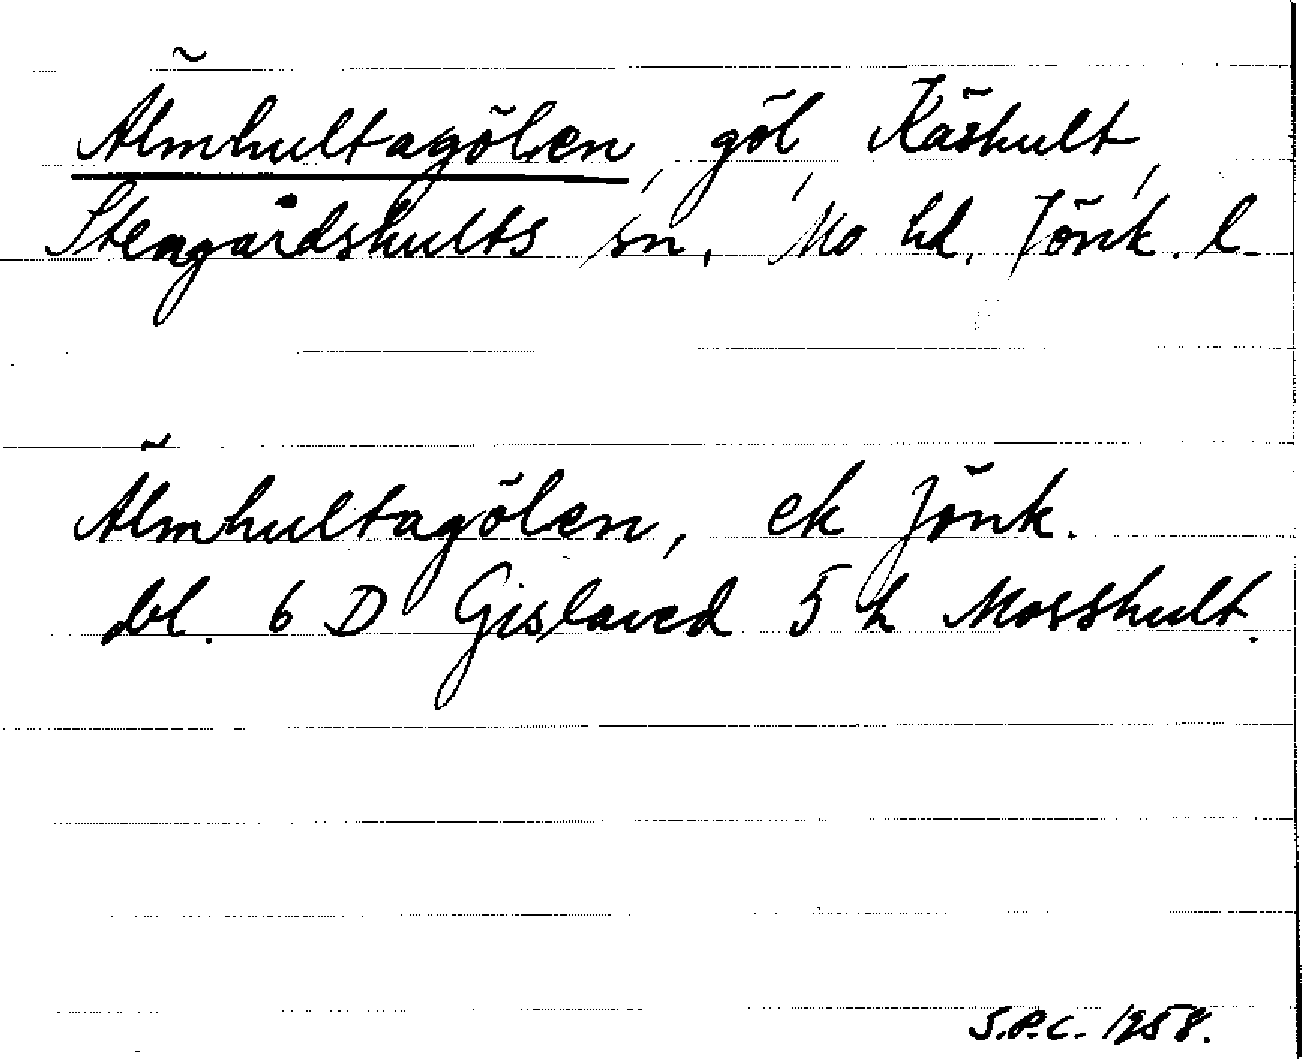 Älmhultagölen, göl, Käshult,
Stengårdshults sn, Mo hd, Jönk. l.
Älmhultagölen, ek Jönk.
bl. 6 D Gislaved 5 h Mosshult.
S.P.C. 1958.